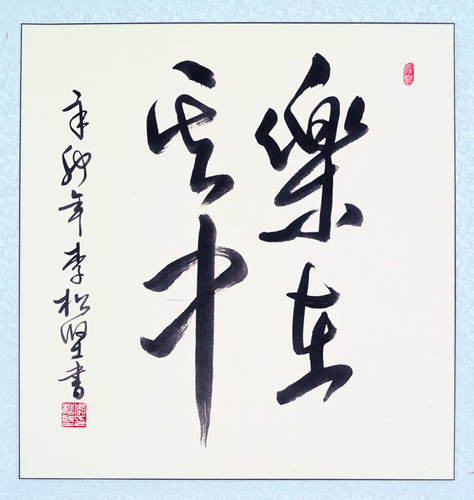 樂在
其中
辛卯年李松堅書